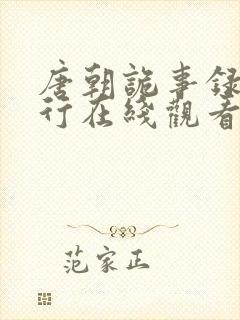 唐朝詭事録
行在綫觀看
范家正